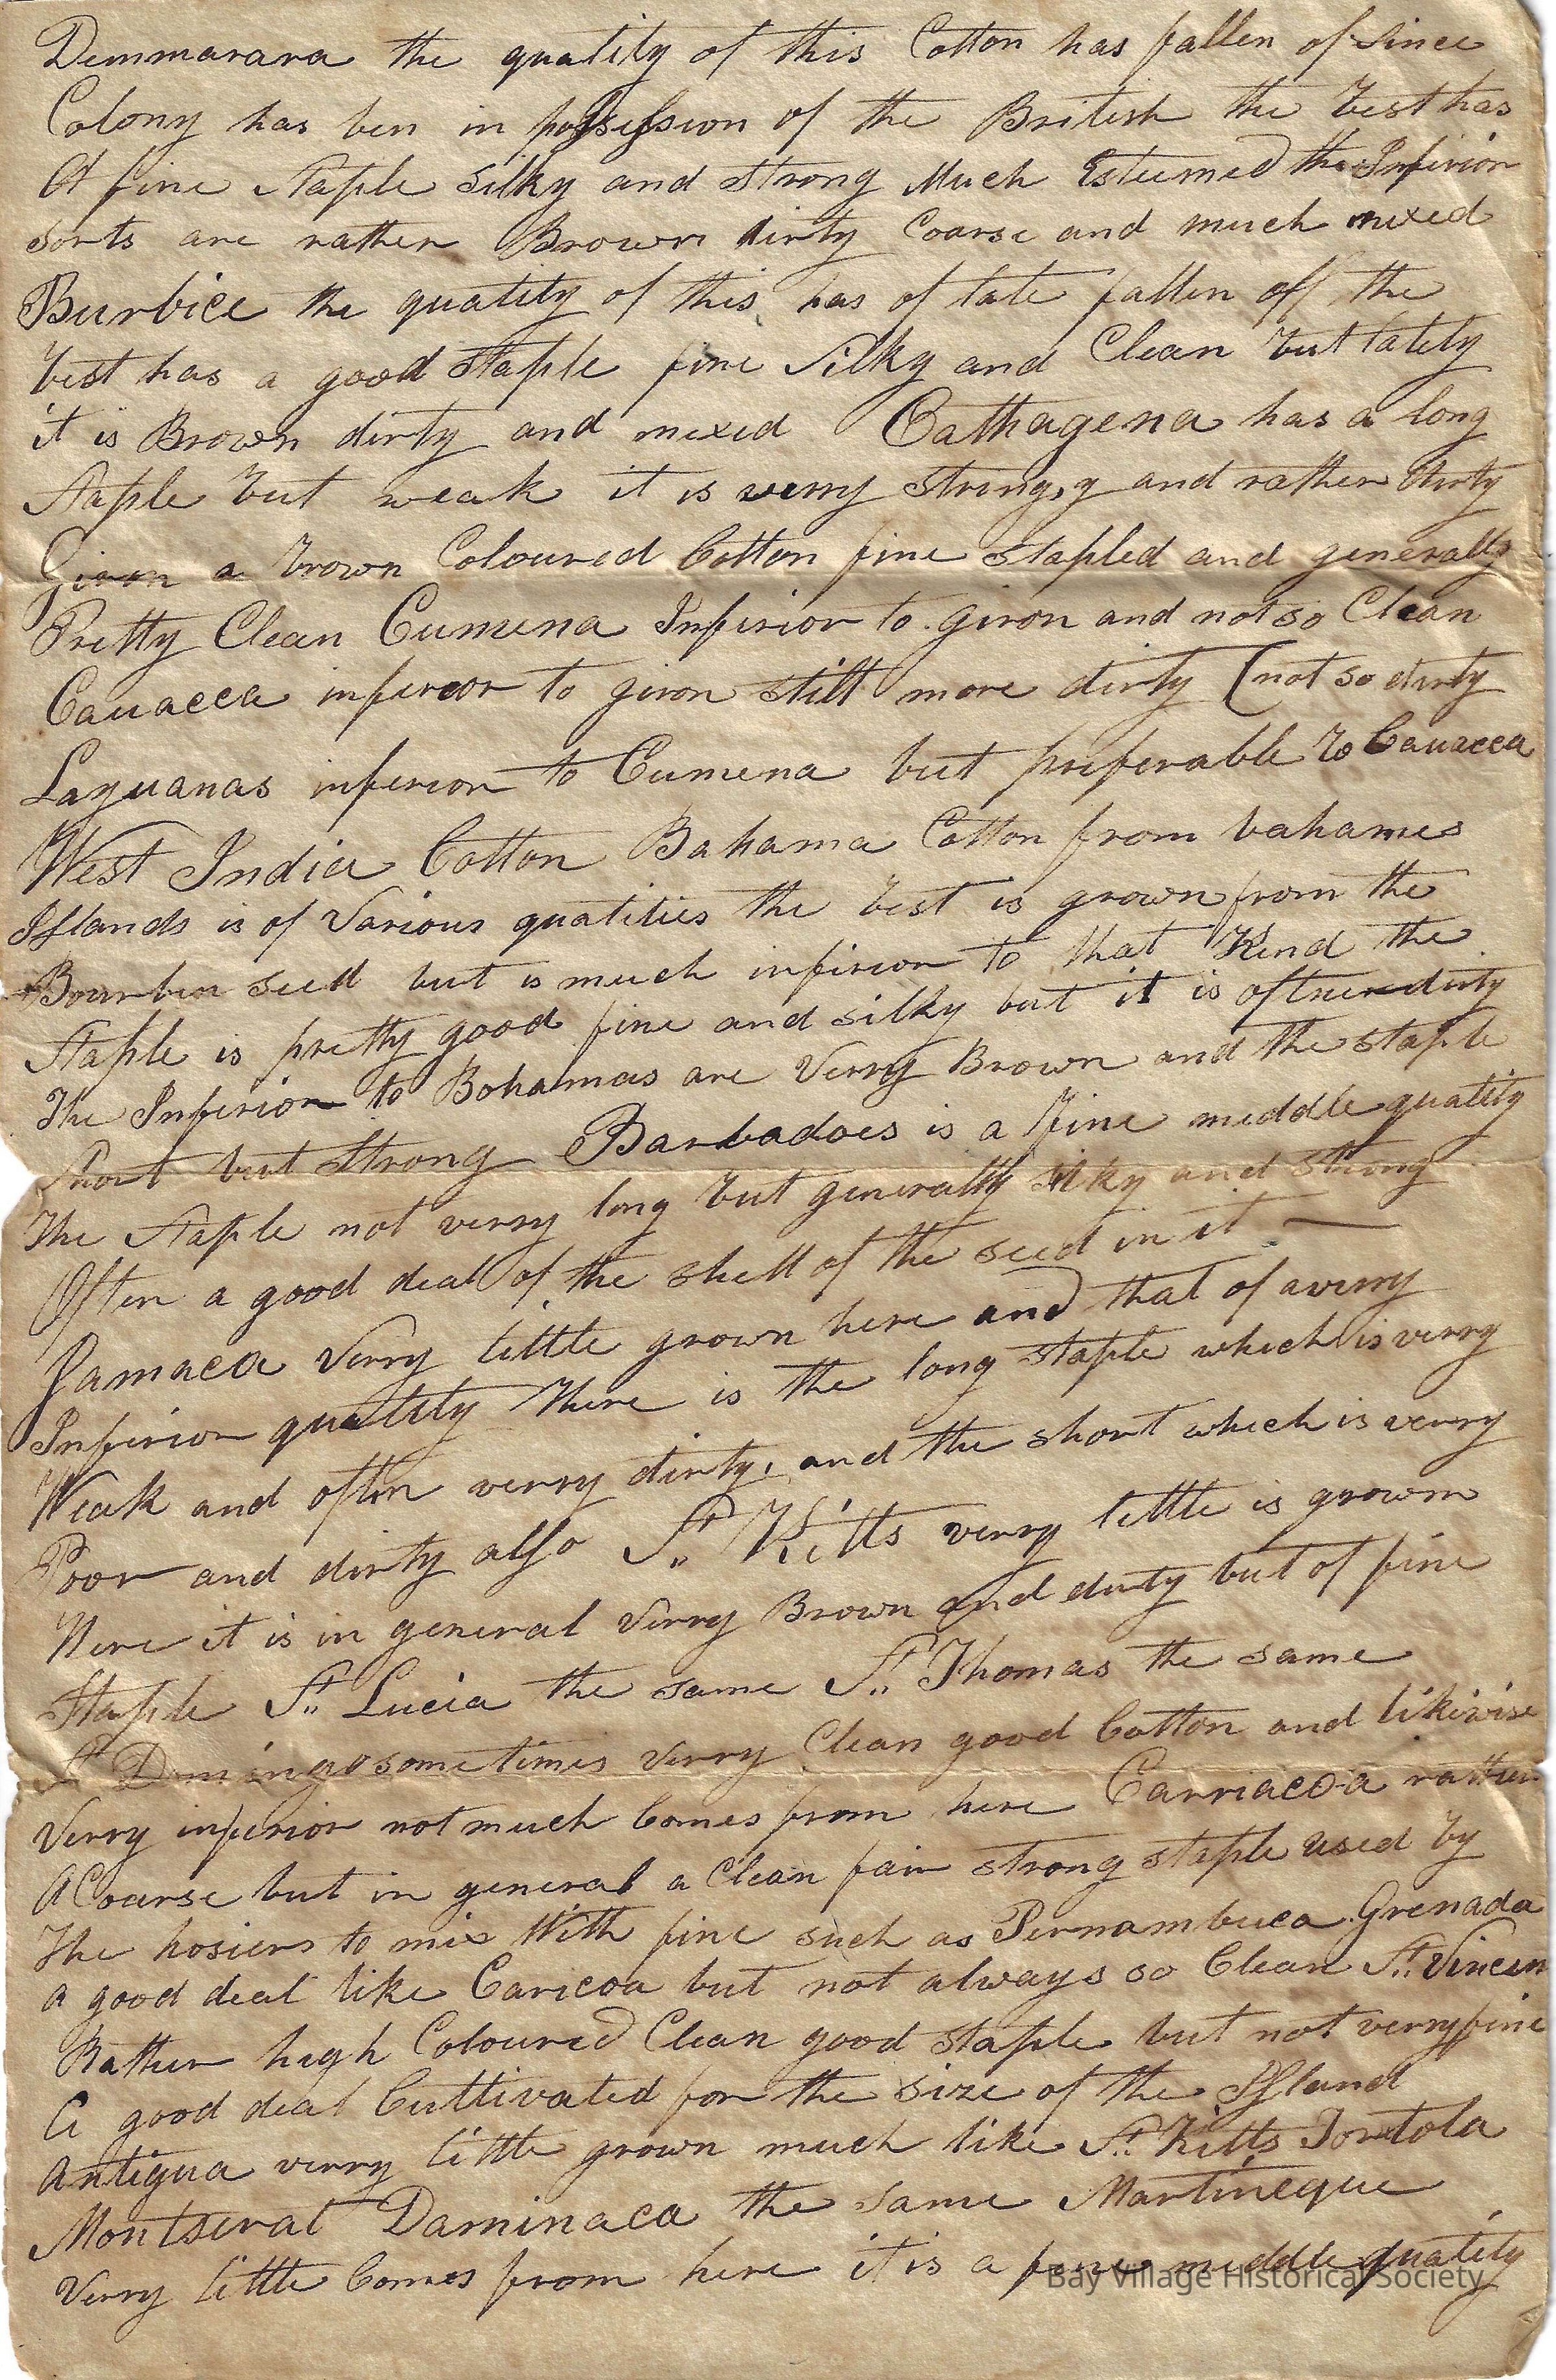 Demmarara the quality of this Cotton has fallen of since
Colony has ben in possession of the British the best has
A fine Staple silky and strong Much Esteemed the Inferior
sorts are rather Brown dirty Coarse and much mixed
Burbice the quality of this has of late fallen off the
best has a good staple fine silky and Clean but lately
it is Brown dirty and mixed Cathagena has a long
staple but weak it is verry stringy and rather dirty
Giron a brown Coloured Cotton fine stapled and generally
Pretty Clean Cumena Inferior to giron and not so Clean
Cauacca inferior to giron still more dirty (not so dirty
Layuanas inferior to Cumena but preferable to Cauacca
West India Cotton Bahama Cotton from bahames
Islands is of Various qualities the best is grown from the
Bourbon seed but is much inferior to that Kind the
Staple is pretty good fine and silky but it is often dirty
The Inferior to Bohamas are Verry Brown and the staple
short but strong Barbadoes is a fine middle quality
The Staple not verry long but generally silky and strong
Often a good deal of the shell of the seed in it —
Jamaca Verry little grown here and that of a verry
Inferior quality there is the long staple which is verry
Weak and often verry dirty, and the short which is verry
Poor and dirty also St. Kitts verry little is grown
Here it is in general Verry Brown and dirty but of fine
Staple St. Lucia the same St. Thomas the same
St Domingo sometimes Verry Clean good Cotton and likiwise
Verry inferior not much Comes from here Carriacoa rather
A Coarse but in general a Clean fair strong staple used by
The hosiers to mix With fine such as Pernambuca Grenada
a good deal like Caricoa but not always so Clean St. Vincen
Rather high Coloured Clean good staple but not verry fine
A good deal Cultivated for the size of the Island
Antigua verry little grown much like St. Kitts Tortola
Montserat Daminaca the same Martineque
Verry little Comes from here it is a fine middle quality
Bay Village Historical Society